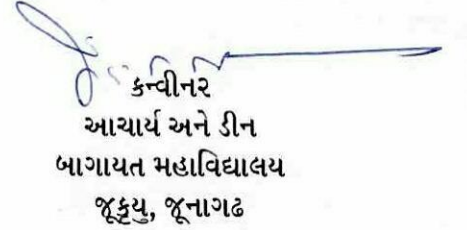 કન્વીનર
આચાર્ય અને ડીન
બાગાયત મહાવિદ્યાલય
જૂકૃયુ, જૂનાગઢ